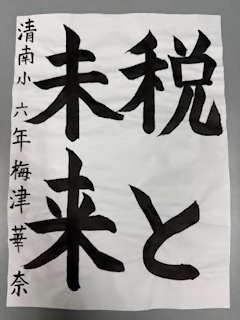 税と
未来
清南小 六年 梅津華奈